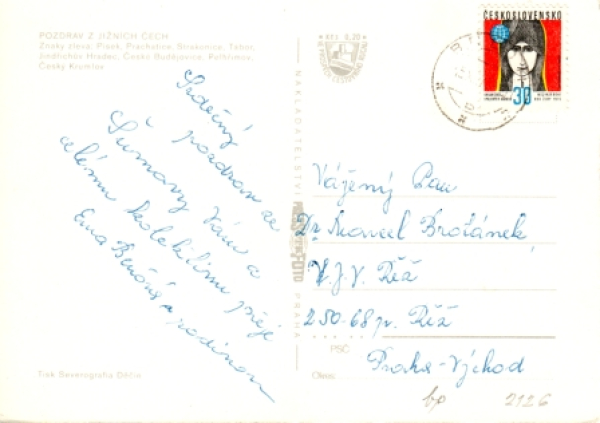 POZDRAV Z JIŽNÍCH ČECH
Znaky zleva: Písek, Prachatice, Strakonice, Tábor,
Jindřichův Hradec, České Budějovice, Pelhřimov,
Český Krumlov
Srdečný
pozdrav ze
Šumavy Vám a
celému kolektivu přeje
Ema
a rodinou
Tisk Severografia Děčín
NAKLADATELSTVÍ
FOTO
PRAHA
Kčs 0,20
ČESKOSLOVENSKO
30
Vážený Pan
Dr. Marcel Brožánek
Ú.J.V. Řež
250-68 p. Řež
PSČ
Praha-Východ
Okres
bp 2126